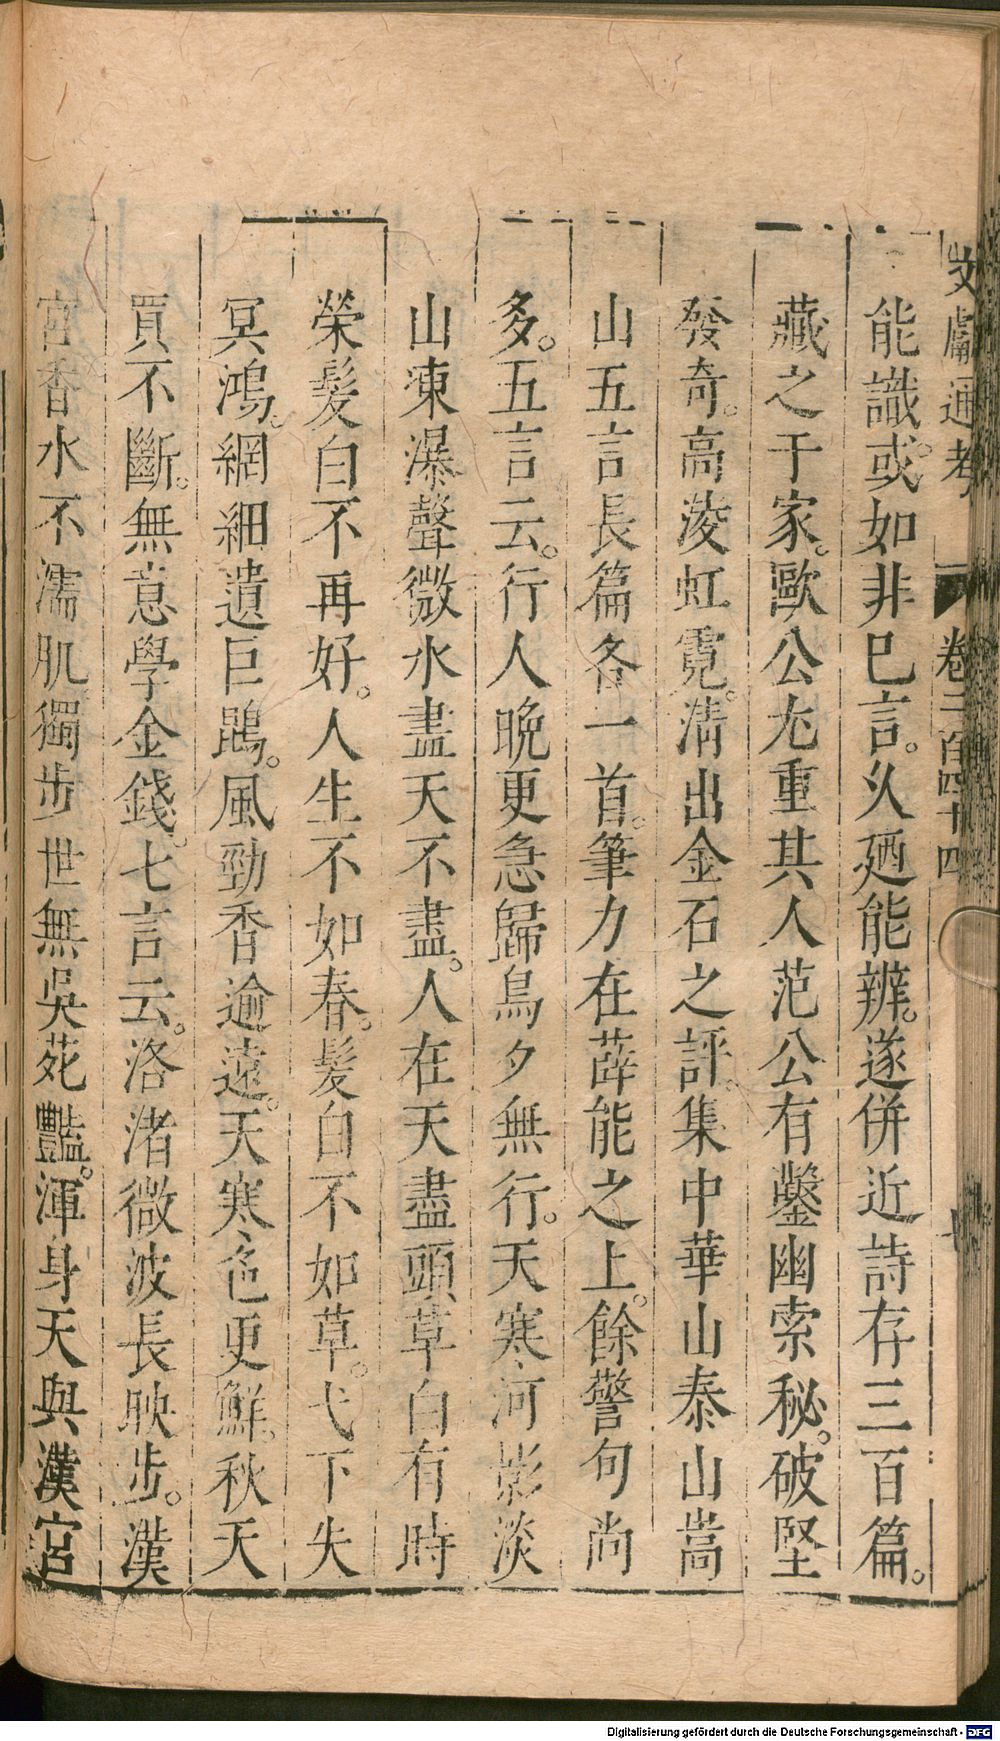 文獻通考 卷二百四十四
能識。或如非已言。久廼能辨。遂併近詩存三百篇。
藏之于家。歐公尤重其人范公有鑿幽索秘。破堅
發奇。高淩虹霓。清出金石之評。集中華山泰山嵩
山五言長篇各一首。筆力在薛能之上。餘警句尚
多。五言云。行人晚更急歸鳥夕無行。天寒河影淡
山凍瀑聲微水盡天不盡。人在天盡頭草白有時
榮髮白不再好。人生不如春。髮白不如草。弋下失
冥鴻。網細遺巨鵾。風勁香逾遠。天寒色更鮮。秋天
買不斷。無意學金錢。七言云。洛渚微波長映步。漢
宮香水不濡肌獨步世無吳苑豔。渾身天與漢宮
Digitalisierung gefördert durch die Deutsche Forschungsgemeinschaft - DFG